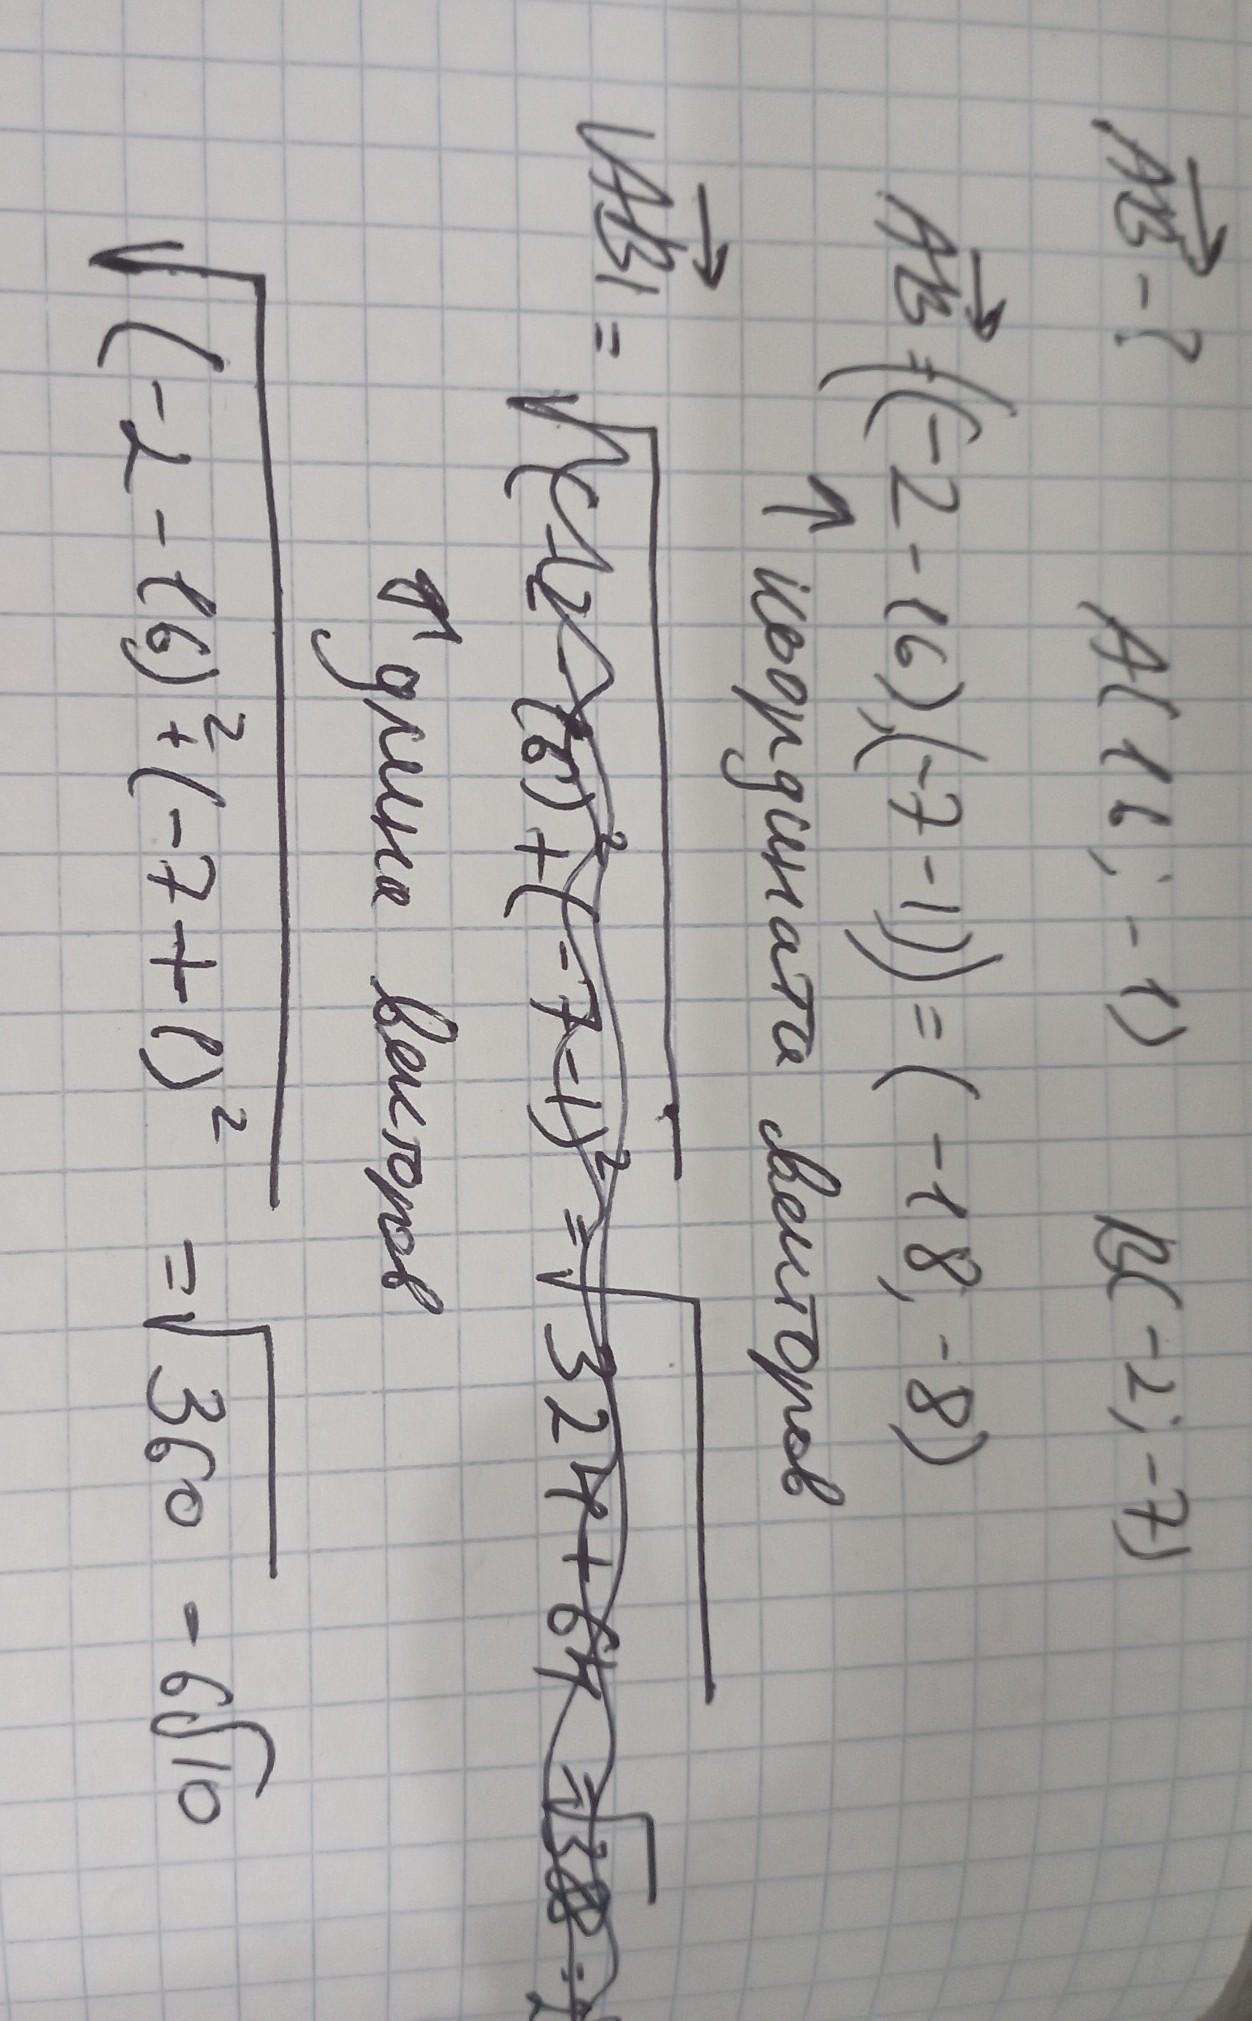 AB - ? A(16; -1) B(-2; -7)
AB = ((-2-16),(-7-1)) = (-18, -8)
↑ координата векторов
|AB| = √(-2-16)²+(-7-1)² = √324+64 = √388
↑ длина векторов
√(-2-16)²+(-7+1)² = √360 - 6√10